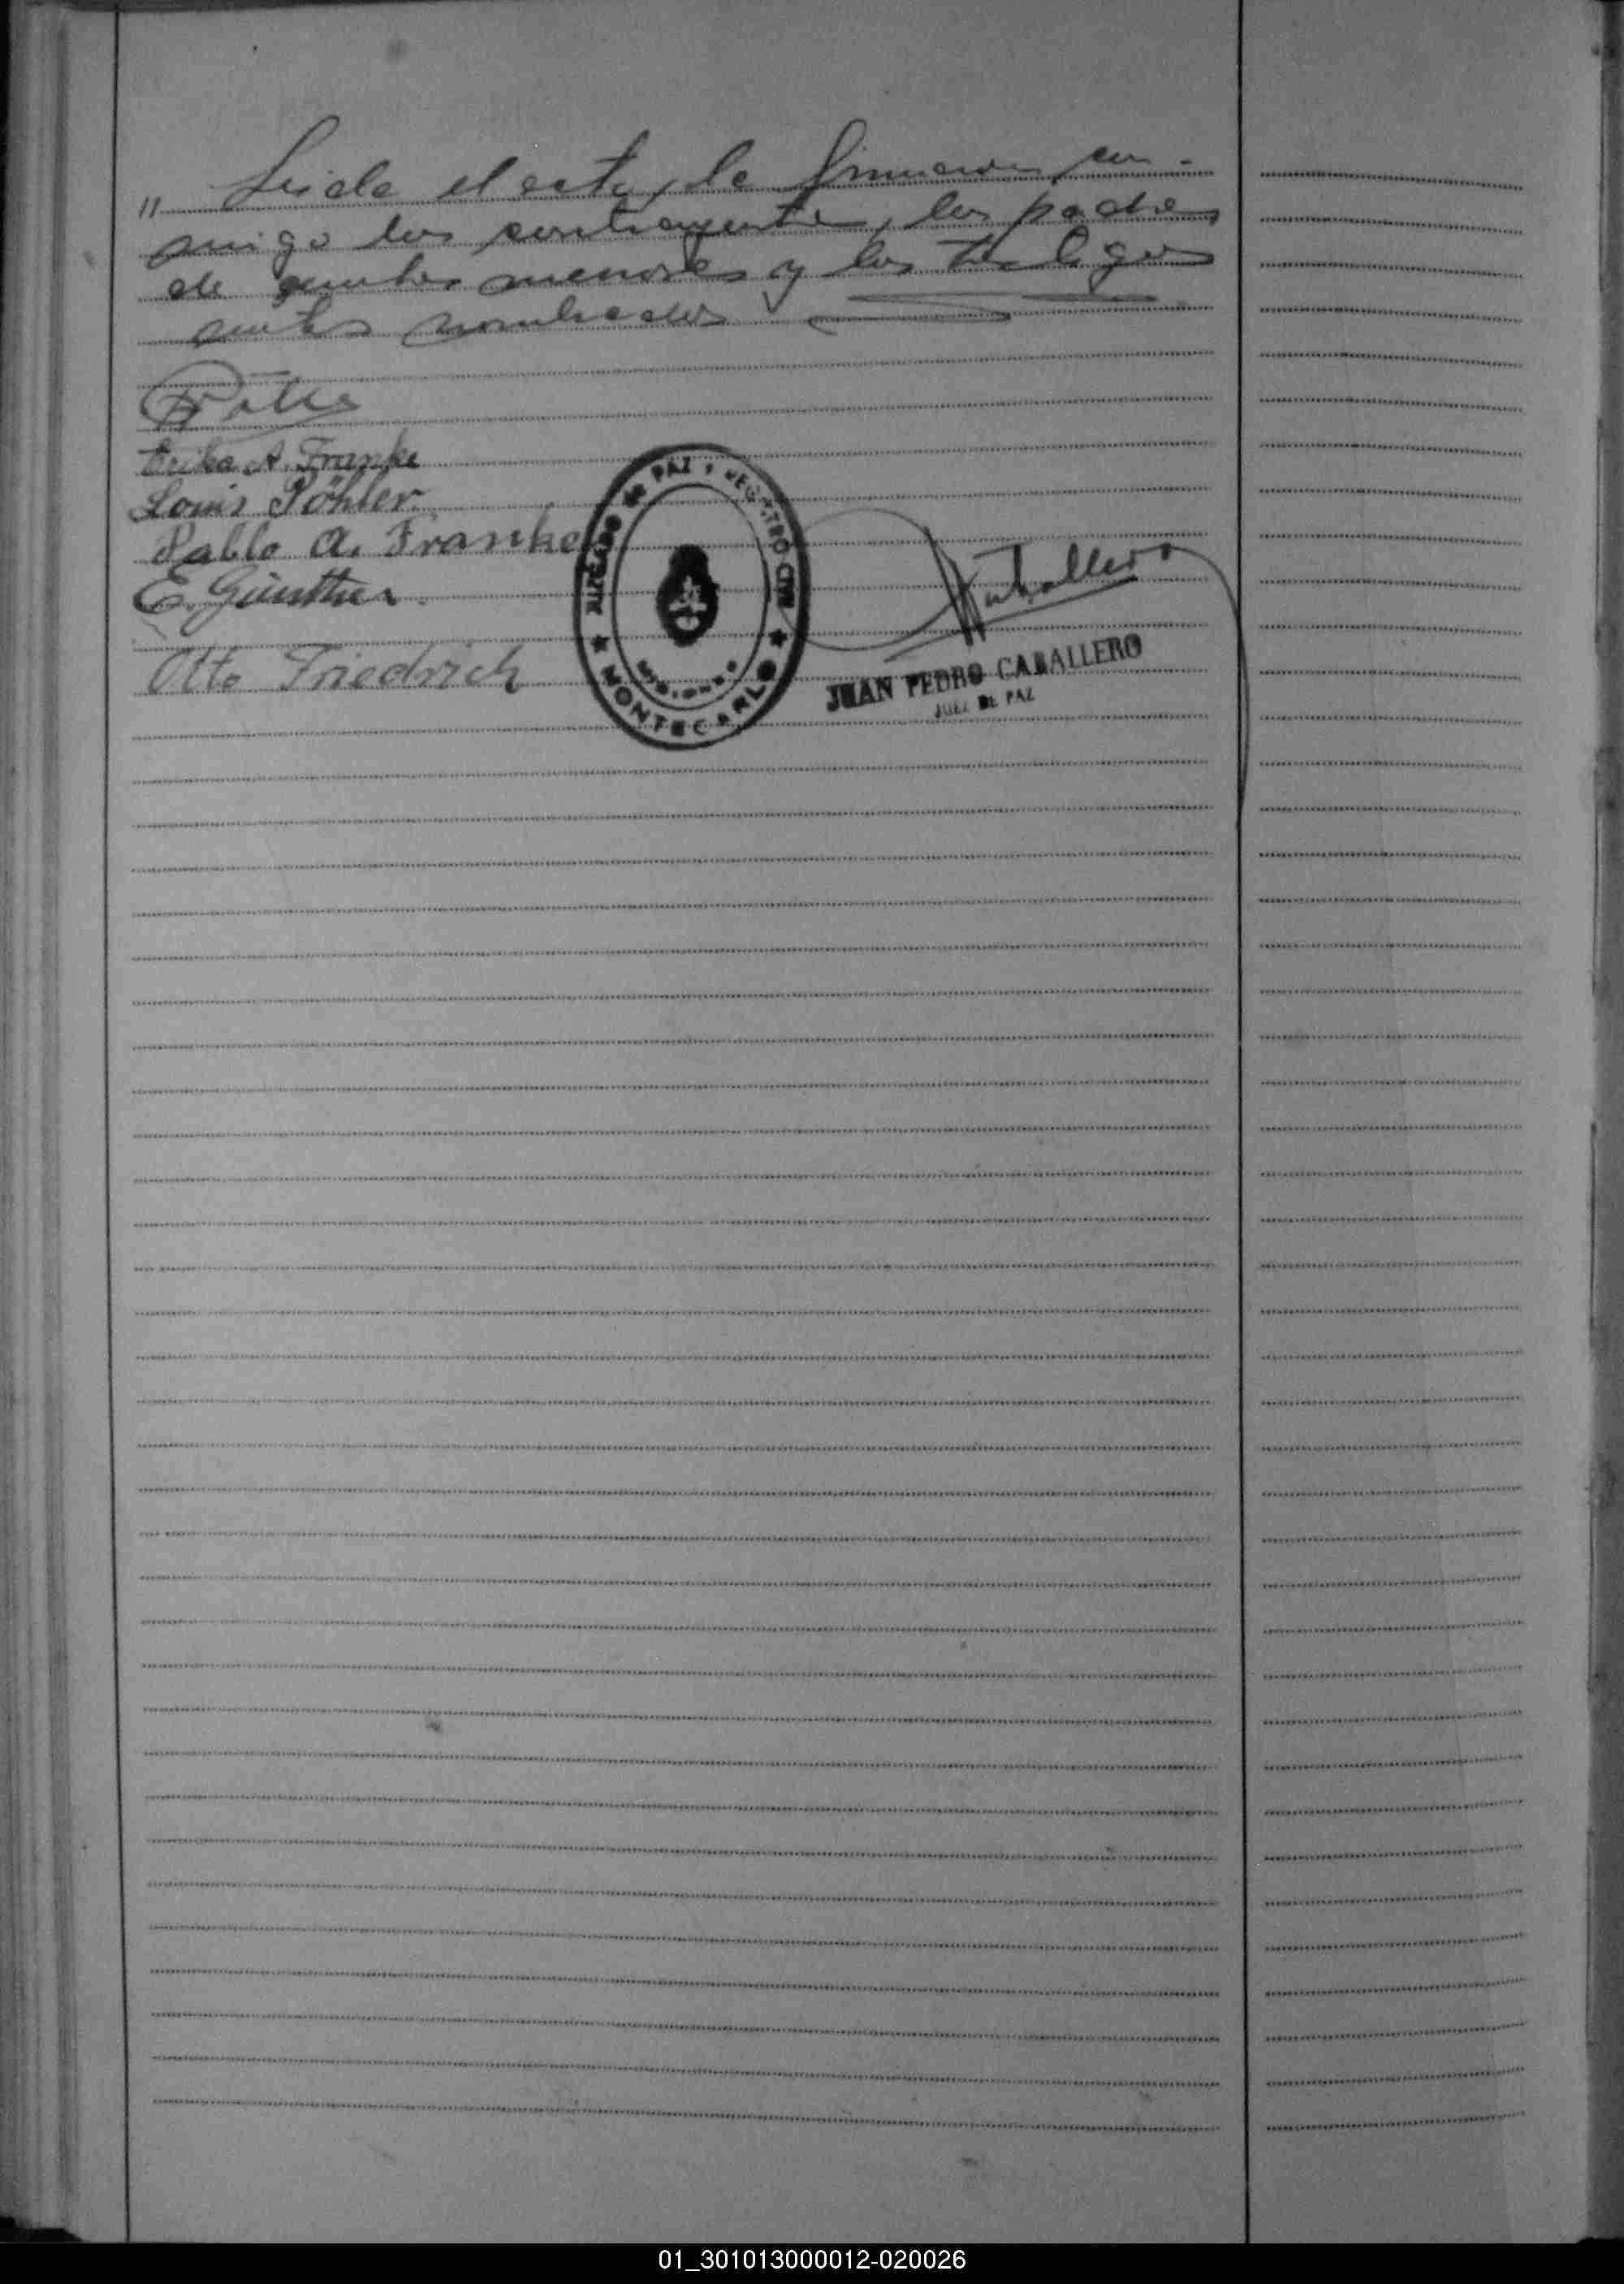 " Leida el acta, la firmaron con-
migo los contrayentes, los padres
de ambos menores y los testigos
antes nombrados
Erika A. Franke
Louis Pöhler.
Pablo A. Franke
E. Günther.
Otto Friedrich
JUZGADO DE PAZ Y REGISTRO CIVIL
MISIONES
★ MONTECARLO ★
Caballero
JUAN PEDRO CABALLERO
JUEZ DE PAZ
01_301013000012-020026